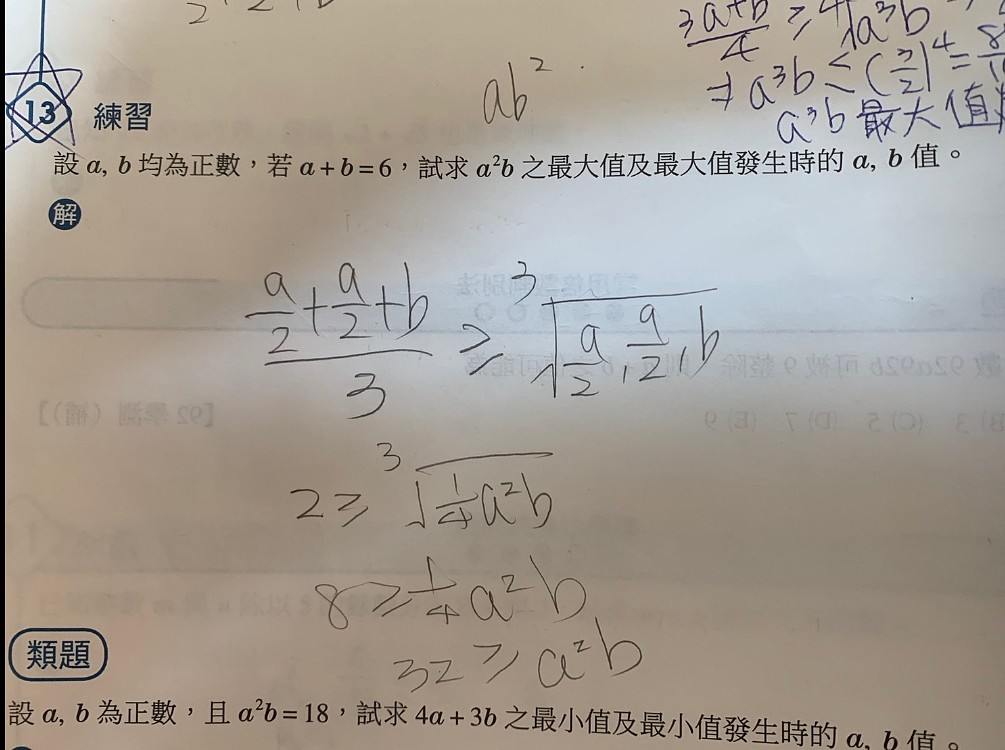 3a+b/4 ≥ 4√a³b
⇒ a³b ≤ (3/2)⁴ =
a³b 最大值
ab²
13 練習
設 a, b 均為正數，若 a + b = 6，試求 a²b 之最大值及最大值發生時的 a, b 值。
解
(a/2 + a/2 + b)/3 ≥ ³√(a/2 · a/2 · b)
2 ≥ ³√(1/4 a²b)
8 ≥ 1/4 a²b
32 ≥ a²b
類題
設 a, b 為正數，且 a²b = 18，試求 4a + 3b 之最小值及最小值發生時的 a, b 值。